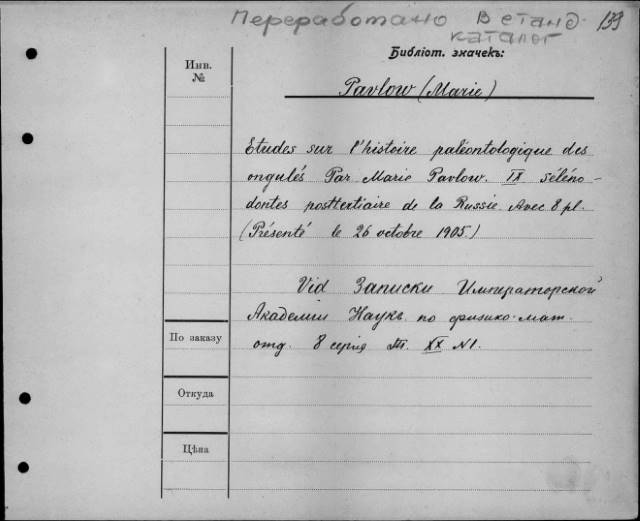 Переработано в станд. 139
каталог
Библіот. значекъ:
Инв.
№
Pavlow (Marie)
Etudes sur l'histoire paléontologique des
ongulés Par Marie Pavlow. IX séléno-
dontes posttertiaire de la Russie. Avec 8 pl.
(Présenté le 26 octobre 1905.)
Vid Записки Императорской
Академіи Наукъ по физико-мат.
отд. 8 серія Т. XX N1.
По заказу
Откуда
Цѣна